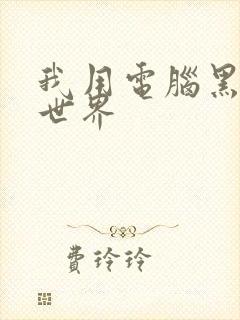 我用電腦黑
世界
費玲玲